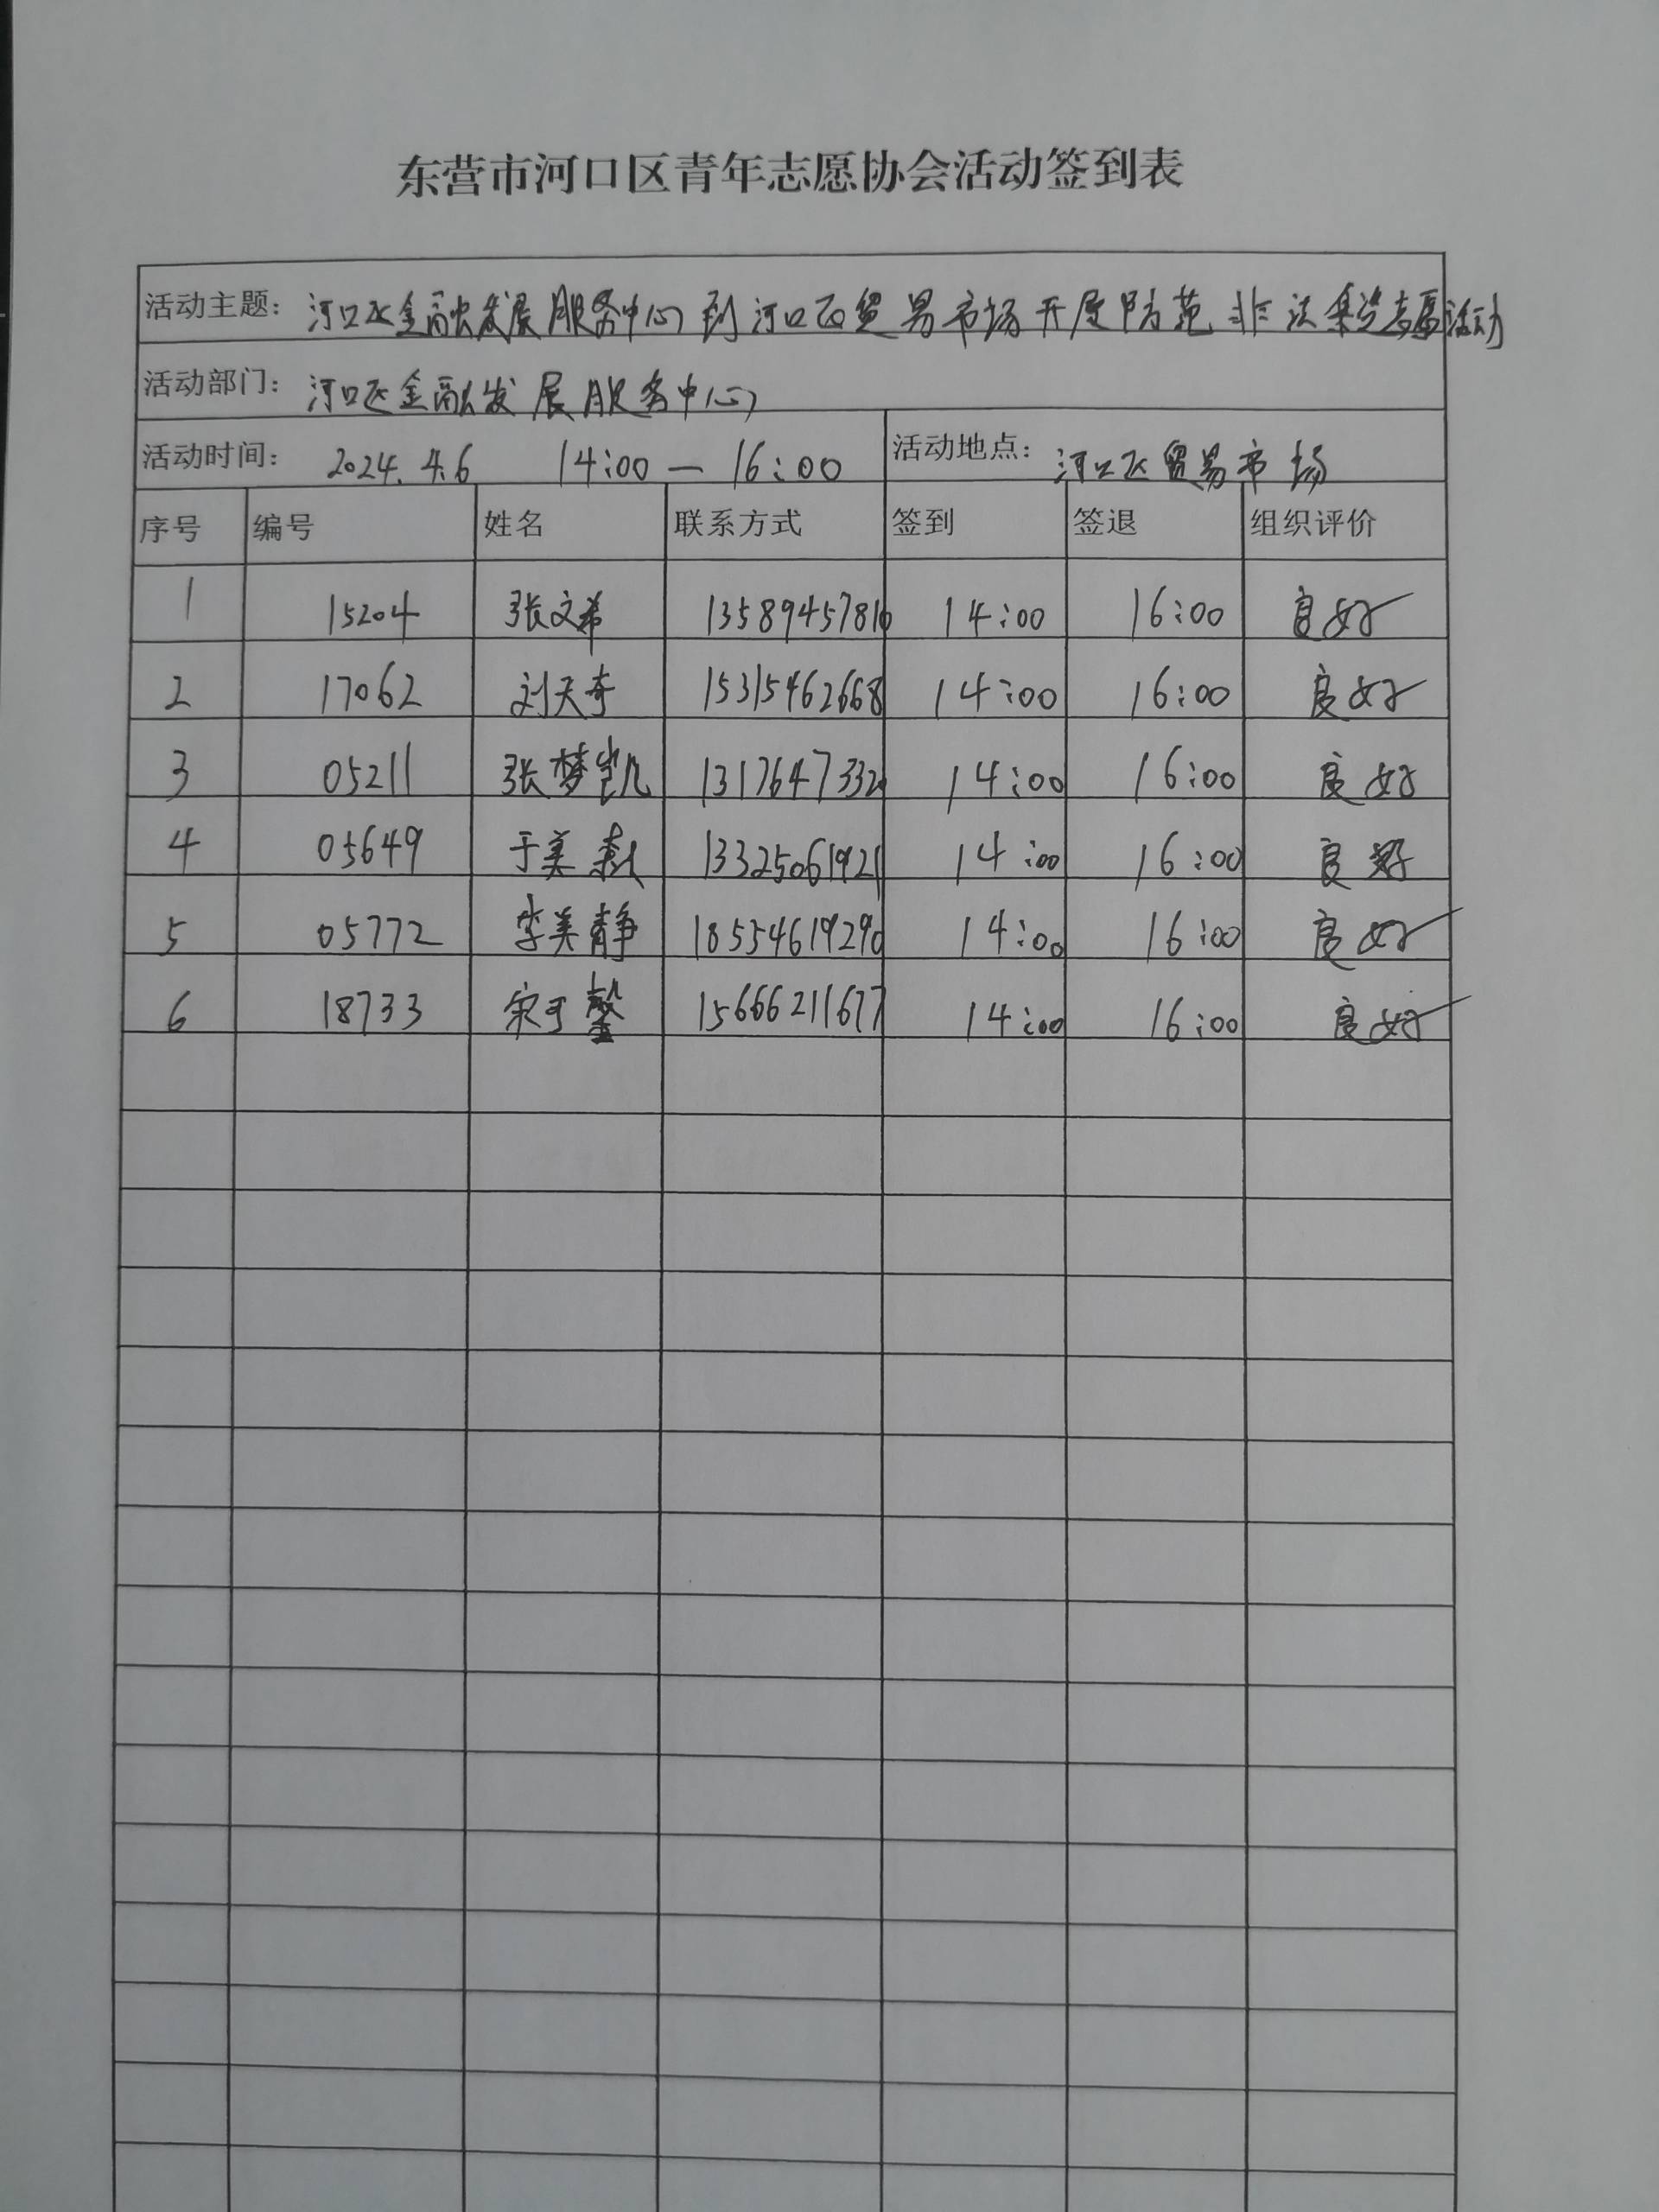 东营市河口区青年志愿协会活动签到表
活动主题: 河口区金融发展服务中心到河口区贸易市场开展防范非法集资志愿活动
活动部门: 河口区金融发展服务中心
活动时间: 2024.4.6 14:00—16:00 活动地点: 河口区贸易市场
序号 编号 姓名 联系方式 签到 签退 组织评价
1 15204 张文希 13589457816 14:00 16:00 良好
2 17062 刘天奇 15315462668 14:00 16:00 良好
3 05211 张梦凯 13176473320 14:00 16:00 良好
4 05649 于美 13325061921 14:00 16:00 良好
5 05772 李美静 18554619290 14:00 16:00 良好
6 18733 宋可馨 15666211677 14:00 16:00 良好